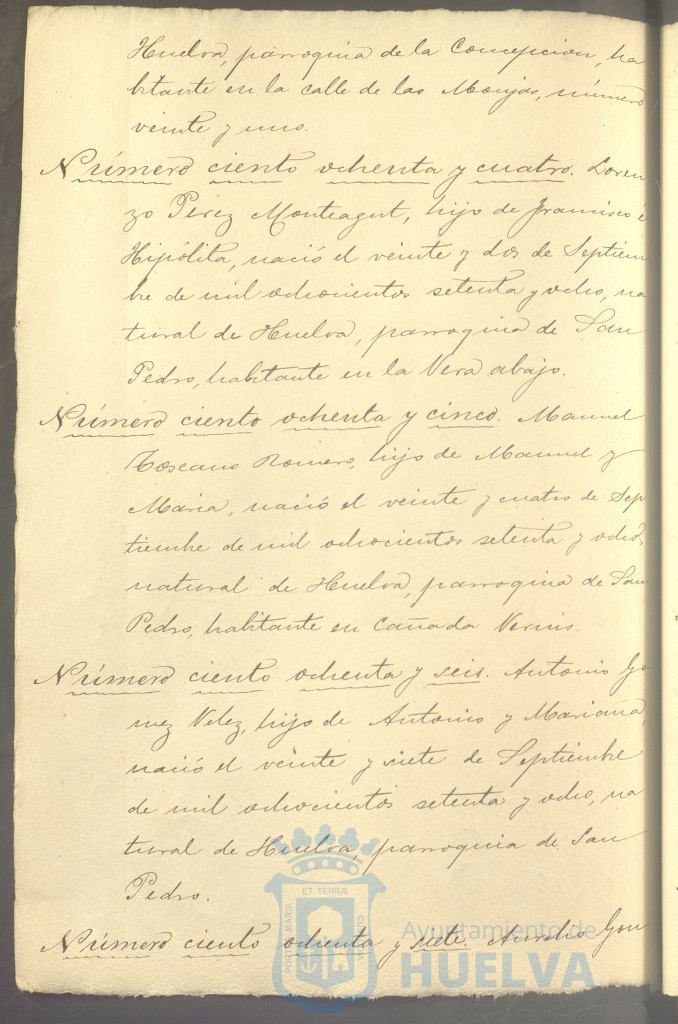 Huelva, parroquia de la Concepcion, ha
bitante en la calle de las Monjas, número
veinte y uno.
Número ciento ochenta y cuatro. Loren
zo Perez Monteagut, hijo de Francisco é
Hipólita, nació el veinte y dos de Septiem
bre de mil ochocientos setenta y ocho, na
tural de Huelva, parroquia de San
Pedro, habitante en la Vera abajo.
Número ciento ochenta y cinco. Manuel
Toscano Romero, hijo de Manuel y
Maria, nació el veinte y cuatro de Sep
tiembre de mil ochocientos setenta y ocho,
natural de Huelva, parroquia de San
Pedro, habitante en Cañada
Número ciento ochenta y seis. Antonio Go
mez Velez, hijo de Antonio y Mariana,
nació el veinte y siete de Septiembre
de mil ochocientos setenta y ocho, na
tural de Huelva, parroquia de San
Pedro.
Número ciento ochenta y siete. Aurelio Gon
PORTUS MARIS ET TERRAE CUSTODIA
Ayuntamiento de
HUELVA